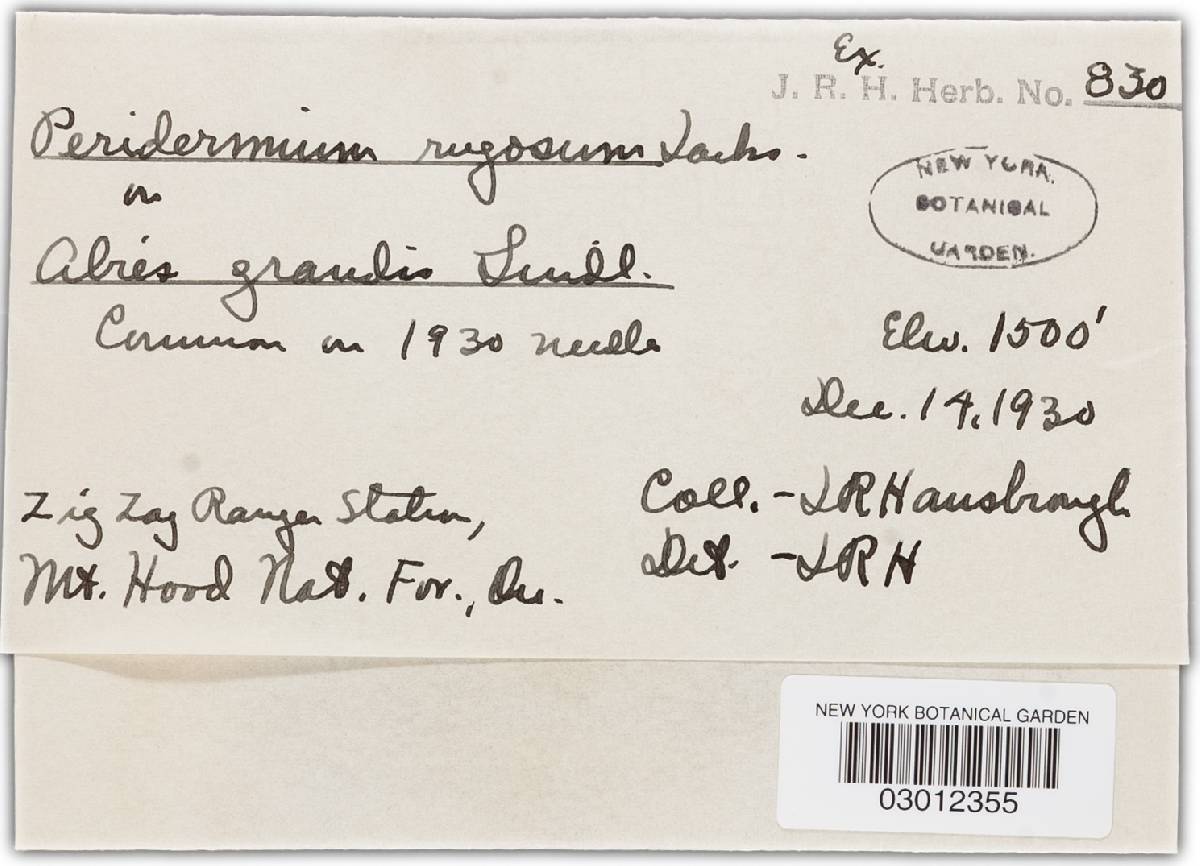 Ex.
J. R. H. Herb. No. 830
Peridermium rugosum Jacks.
on
Abies grandis Lindl.
Common on 1930 needles
NEW YORK
BOTANICAL
GARDEN.
Elev. 1500'
Dec. 14, 1930
Zig Zag Ranger Station,
Mt. Hood Nat. For., Ore.
Coll. - JR Hansbrough
Det. - JRH
NEW YORK BOTANICAL GARDEN
03012355